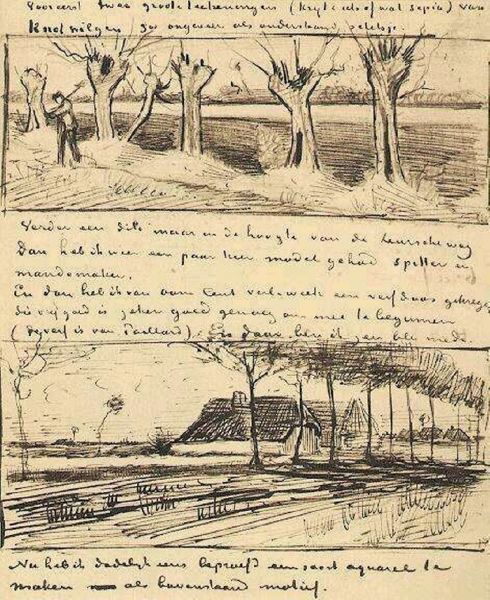 Vooreerst twee groote teekeningen (krijt & iets of wat sepia) van
Knotwilgen. Zoo ongeveer als onderstaand
Verder een dito maar in de hoogte van de Leursche weg
Dan heb ik weer een paar keer model gehad spitter en
mandemaker.
En dan heb ik van oom Cent week een verfdoos gekregen
die vrij goed is zeker goed genoeg om mee te beginnen
(verf is van Paillard). En daar ben ik zeer blij mede.
Nu heb ik dadelijk eens beproefd een soort aquarel te
maken als bovenstaand motief.